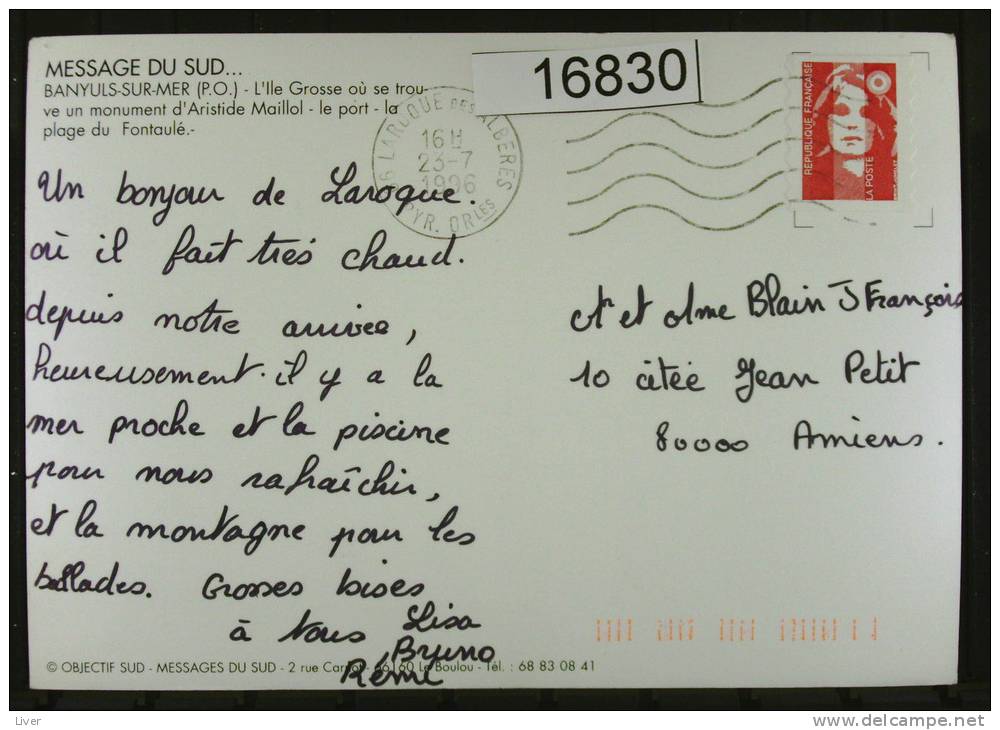 16830
MESSAGE DU SUD...
BANYULS-SUR-MER (P.O.) - L'Ile Grosse où se trou-
ve un monument d'Aristide Maillol - le port - la
plage du Fontaulé.-
66 LAROQUE DES ALBERES
16 H
23-7
1996
PYR. ORLES
REPUBLIQUE FRANÇAISE
LA POSTE
Un bonjour de Laroque.
où il fait très chaud.
depuis notre arrivée,
heureusement. il y a la
mer proche et la piscine
pour nous rafraîchir,
et la montagne pour les
ballades. Grosses bises
à tous Lisa
Bruno
Rémi
Mr et Mme Blain J François
10 citée Jean Petit
80000 Amiens.
© OBJECTIF SUD - MESSAGES DU SUD - 2 rue Carnot - 66160 Le Boulou - Tél. : 68 83 08 41
Liver
www.delcampe.net